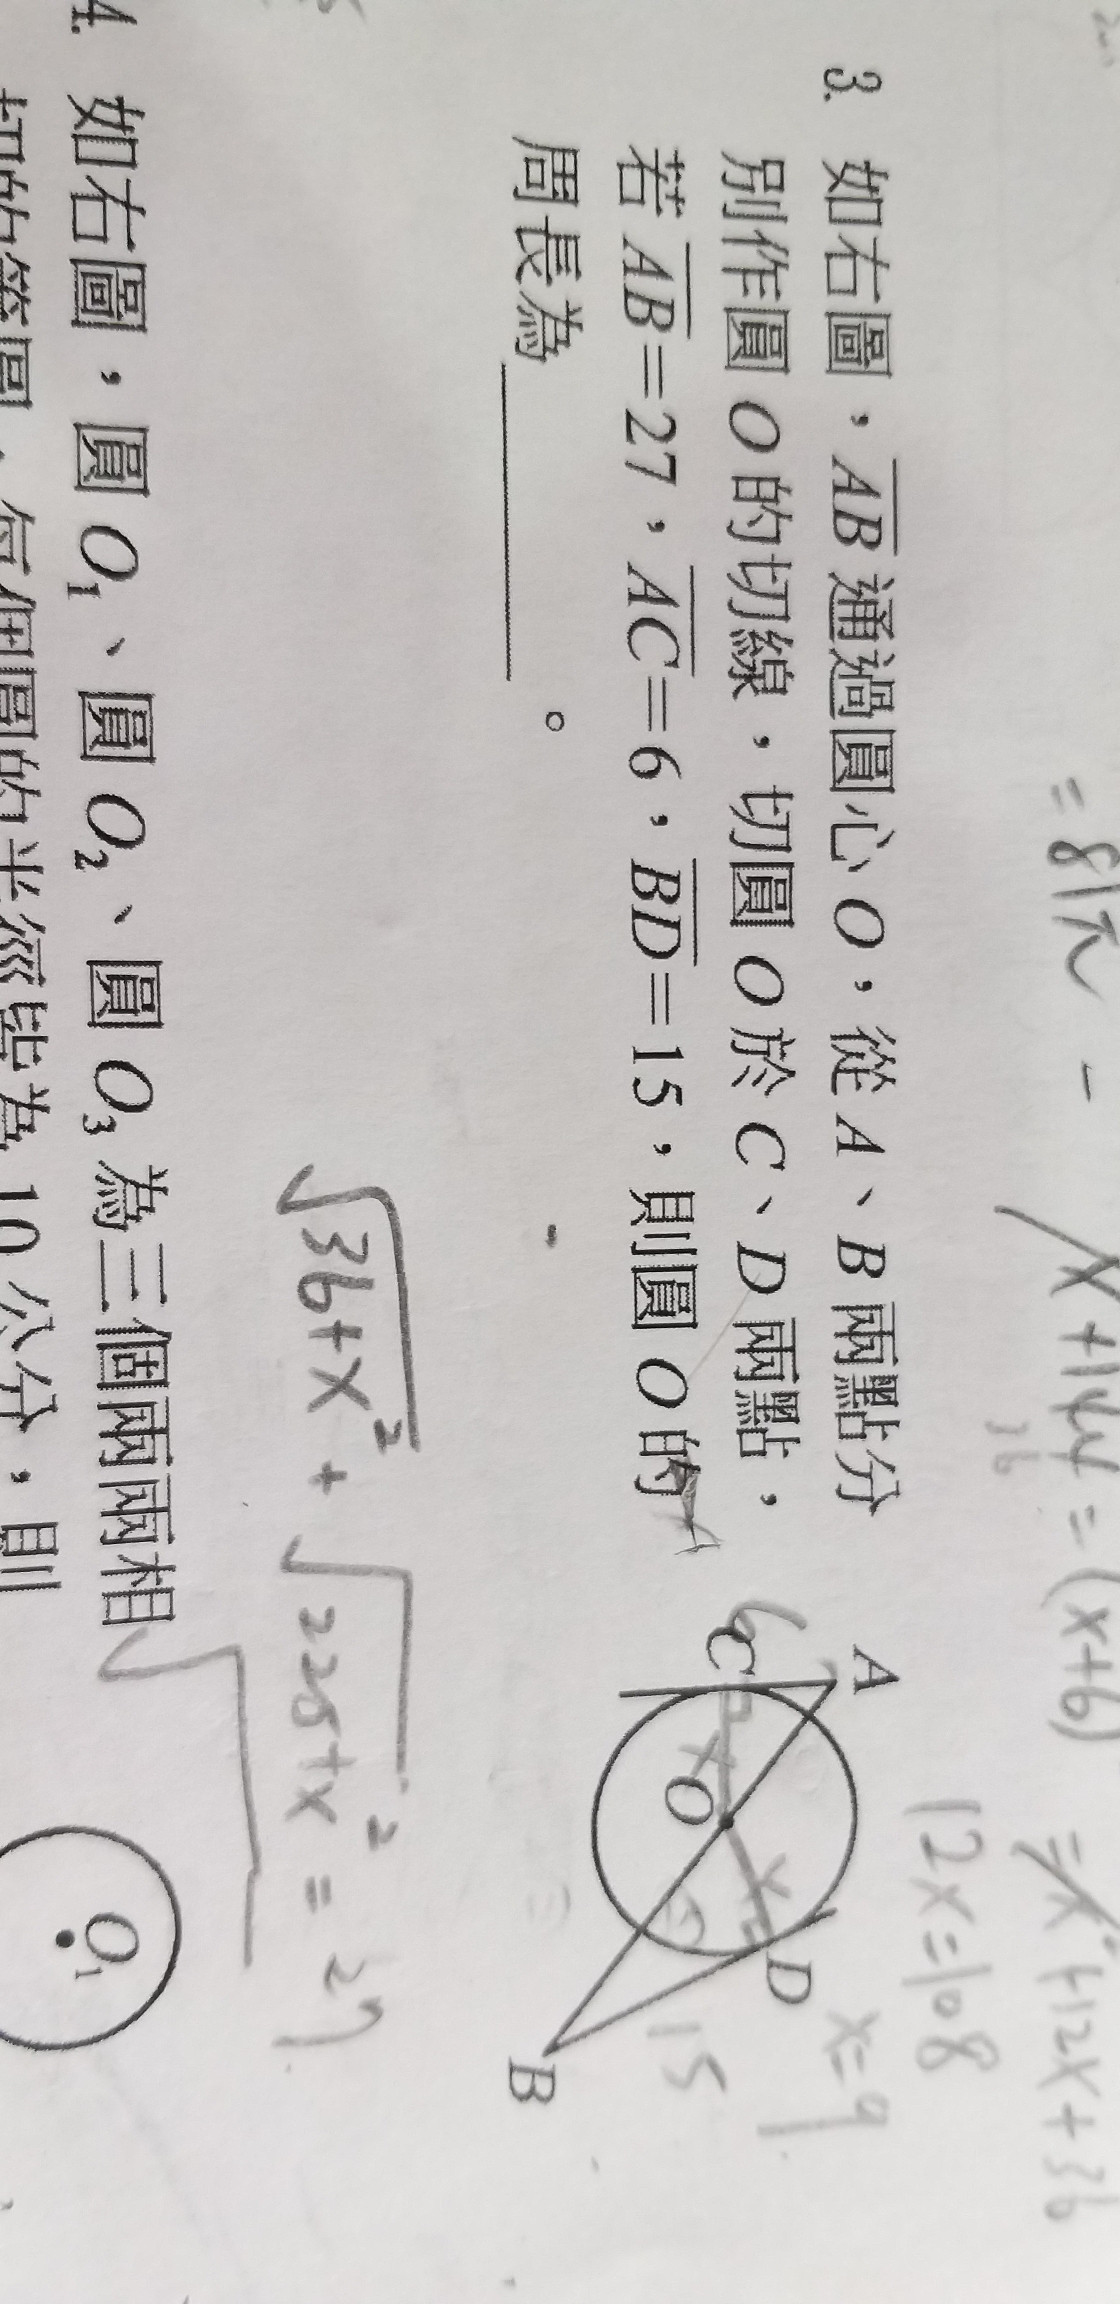 = 81π -
X+144 = (x+6)
36
= x²+12x+36
12x=108
x=9
3. 如右圖，AB通過圓心O，從A、B兩點分
別作圓O的切線，切圓O於C、D兩點，
若AB=27，AC=6，BD=15，則圓O的
周長為＿＿＿＿。
A
C
6
O
x
x
D
15
B
√36+x² + √225+x² = 27
4. 如右圖，圓O₁、圓O₂、圓O₃為三個兩兩相
切的等圓，每個圓的半徑皆為10公分，則
O₁